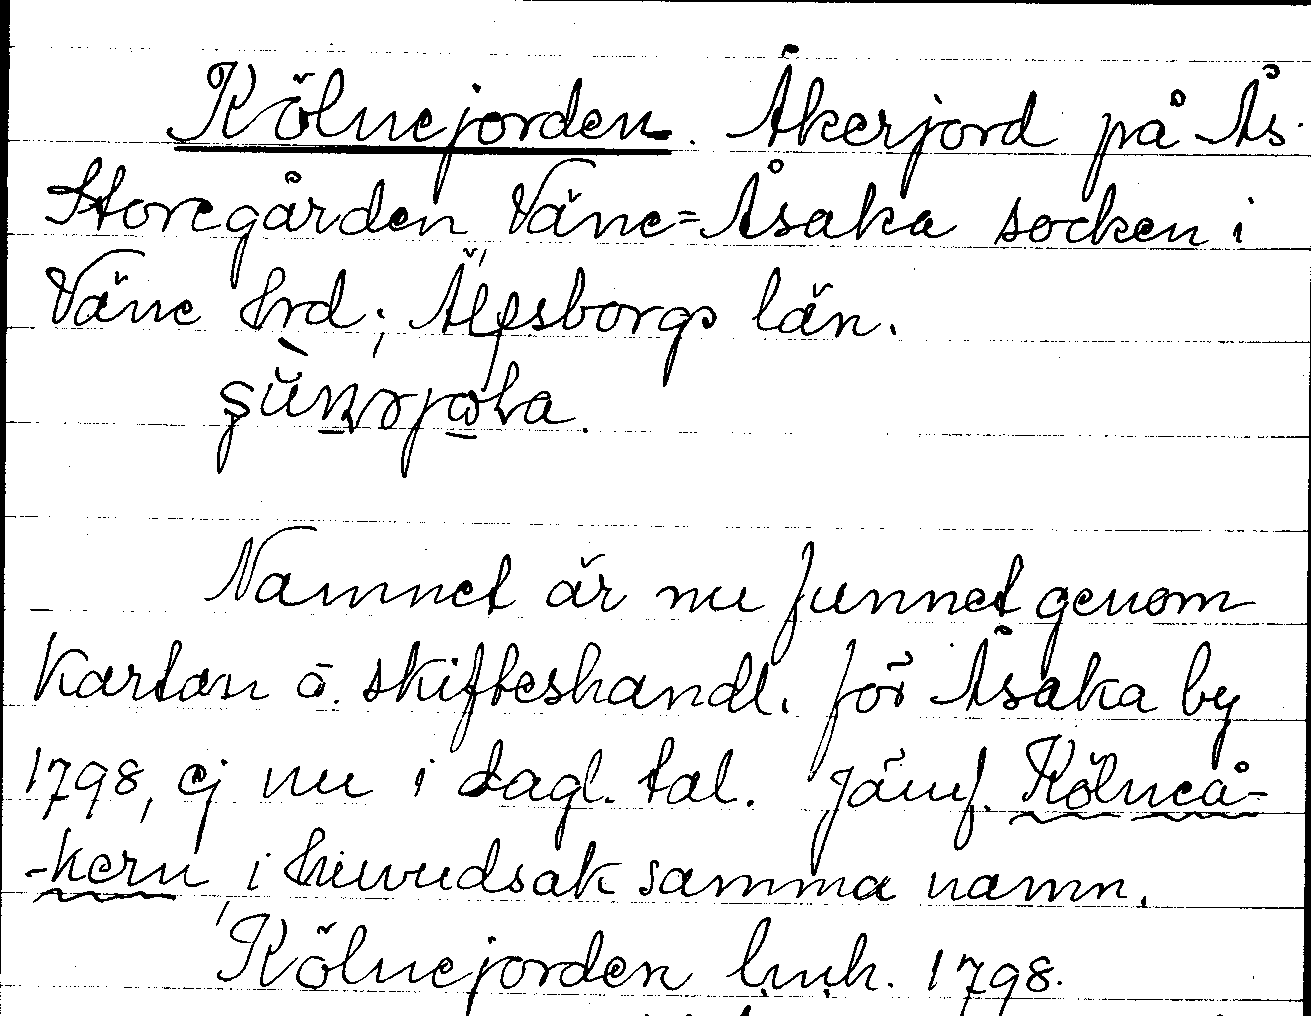 Kölnejorden. Åkerjord på Ås
Storegården, Väne=Åsaka socken i
Väne hrd; Älfsborgs län.
Namnet är nu funnet genom
kartan o. skifteshandl. för Åsaka by
1798, ej nu i dagl. tal. Jämf. Kölneå-
-kern, i huvudsak samma namn.
Kölnejorden lmh. 1798.